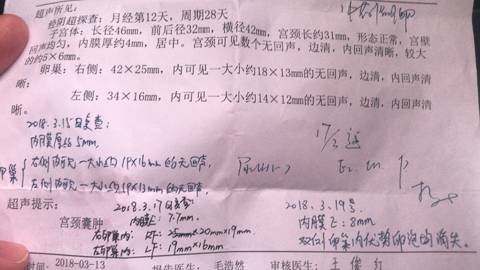 超声所见：
经阴超探查：月经第12天，周期28天
子宫体：长径46mm，前后径32mm，横径42mm，宫颈长约31mm，形态正常，宫壁
回声均匀，内膜厚约4mm，居中。宫颈可见数个无回声，边清，内回声清晰，较大
的约5×6mm。
卵巢：右侧：42×25mm，内可见一大小约18×13mm的无回声，边清，内回声清
晰；
左侧：34×16mm，内可见一大小约14×12mm的无回声，边清，内回声清
晰。
2018.3.15日复查：
内膜厚约5mm，
右侧内可见一大小约19×16mm的无回声，
左侧内可见一大小约19×13mm的无回声。
超声提示：
宫颈囊肿
2018.3.17日复查：
内膜E：7.7mm。
右卵巢内：RF：25mm×20mm×19mm
左卵巢内：LF：19mm×16mm
2018.3.19号
内膜E：8mm
双侧卵巢内优势卵泡的消失。
时间：2018-03-13
报告医生：毛浩然
审核医生：王俊红